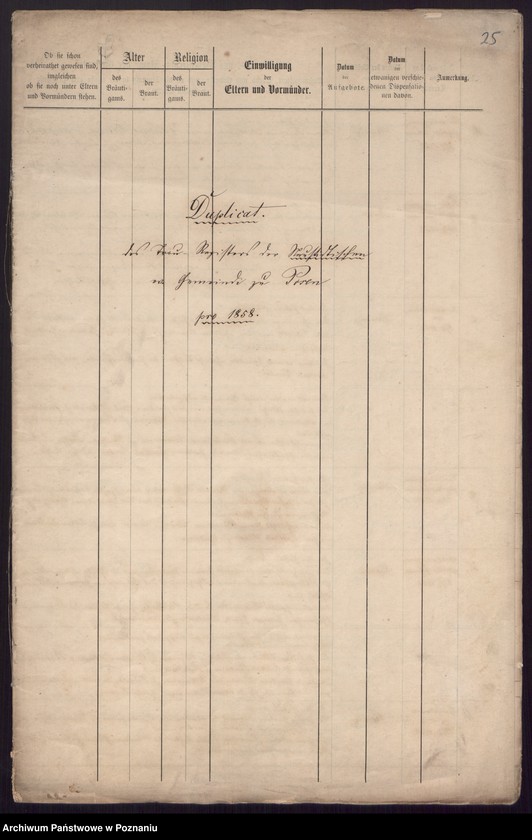 25
Ob sie schon
verheirathet gewesen sind,
imgleichen
ob sie noch unter Eltern
und Vormündern stehen.
Alter
des
Bräuti-
gams.
der
Braut.
Religion
des
Bräuti-
gams.
der
Braut.
Einwilligung
der
Eltern und Vormünder.
Datum
der
Aufgebote.
Datum
der
etwanigen verschie-
denen Dispensatio-
nen davon.
Anmerkung.
Duplicat.
des Trau-Registers der Neustädtischen
ev Gemeinde zu Posen
pro 1858.
Archiwum Państwowe w Poznaniu